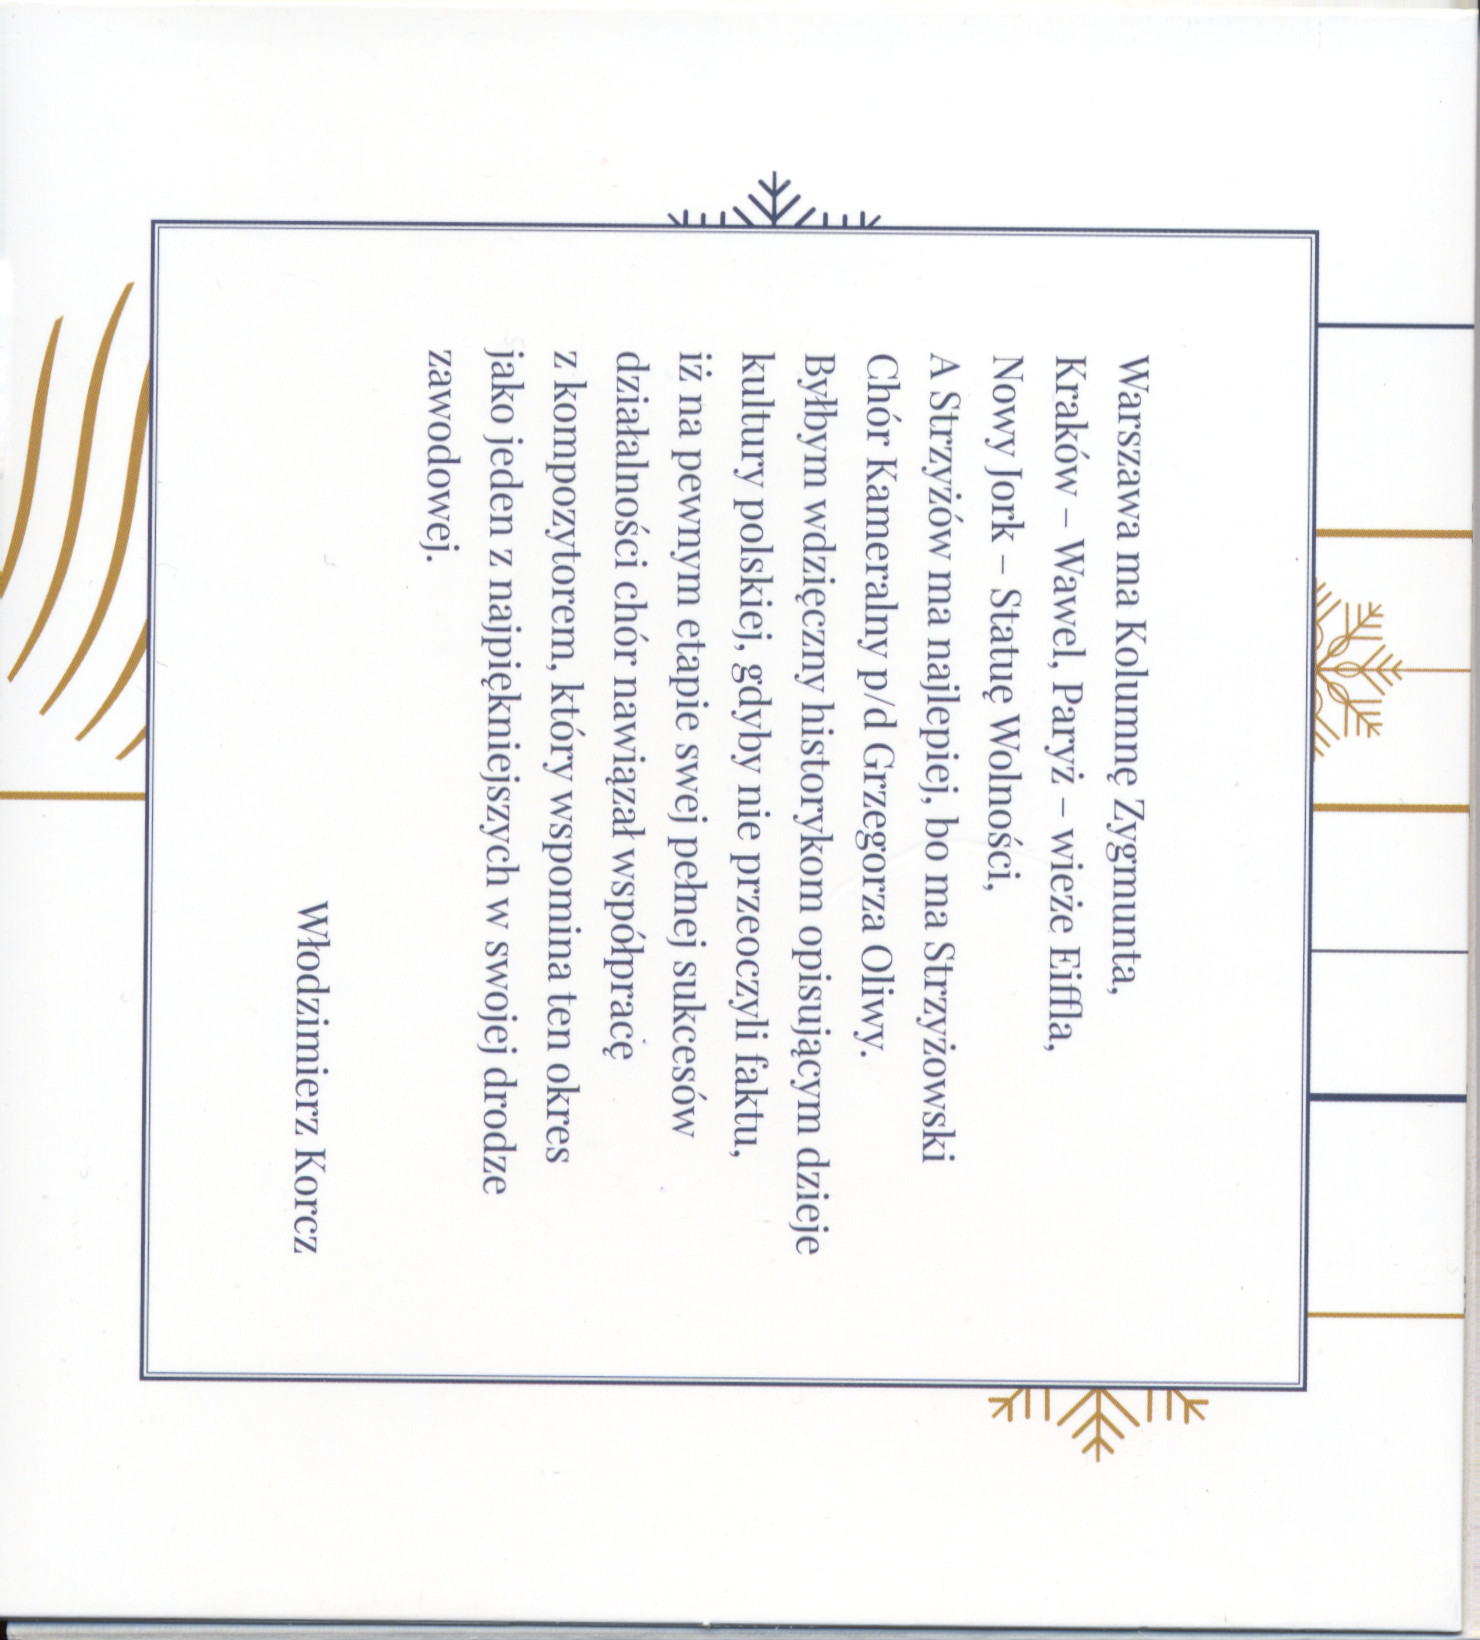 Warszawa ma Kolumnę Zygmunta,
Kraków – Wawel, Paryż – wieże Eiffla,
Nowy Jork – Statuę Wolności,
A Strzyżów ma najlepiej, bo ma Strzyżowski
Chór Kameralny p/d Grzegorza Oliwy.
Byłbym wdzięczny historykom opisującym dzieje
kultury polskiej, gdyby nie przeoczyli faktu,
iż na pewnym etapie swej pełnej sukcesów
działalności chór nawiązał współpracę
z kompozytorem, który wspomina ten okres
jako jeden z najpiękniejszych w swojej drodze
zawodowej.
Włodzimierz Korcz